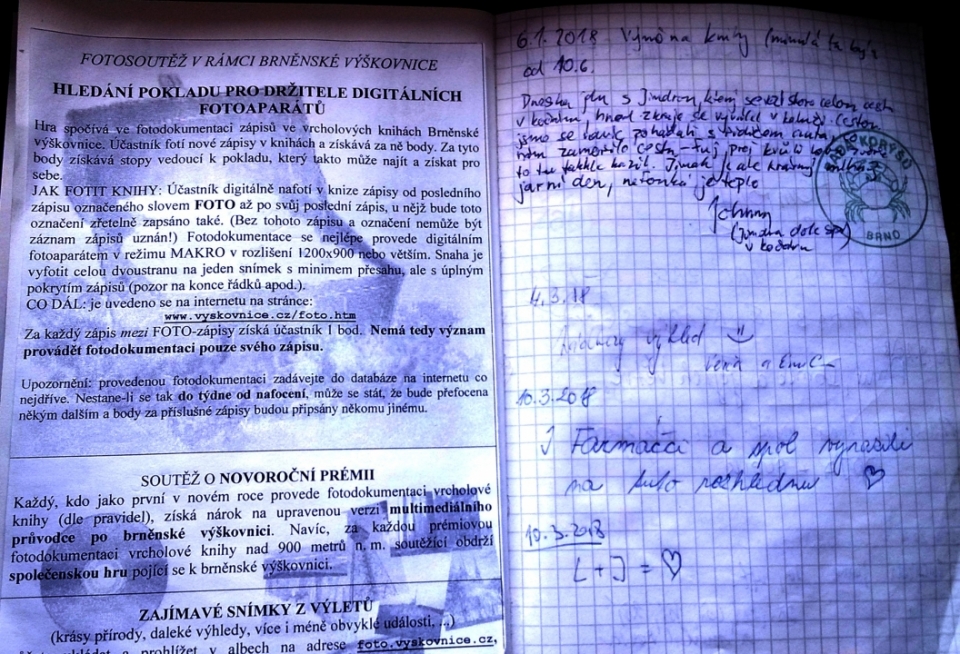 FOTOSOUTĚŽ V RÁMCI BRNĚNSKÉ VÝŠKOVNICE
HLEDÁNÍ POKLADU PRO DRŽITELE DIGITÁLNÍCH
FOTOAPARÁTŮ
Hra spočívá ve fotodokumentaci zápisů ve vrcholových knihách Brněnské
výškovnice. Účastník fotí nové zápisy v knihách a získává za ně body. Za tyto
body získává stopy vedoucí k pokladu, který takto může najít a získat pro
sebe.
JAK FOTIT KNIHY: Účastník digitálně nafotí v knize zápisy od posledního
zápisu označeného slovem FOTO až po svůj poslední zápis, u nějž bude toto
označení zřetelně zapsáno také. (Bez tohoto zápisu a označení nemůže být
záznam zápisů uznán!) Fotodokumentace se nejlépe provede digitálním
fotoaparátem v režimu MAKRO v rozlišení 1200x900 nebo větším. Snaha je
vyfotit celou dvoustranu na jeden snímek s minimem přesahu, ale s úplným
pokrytím zápisů (pozor na konce řádků apod.).
CO DÁL: je uvedeno se na internetu na stránce:
www.vyskovnice.cz/foto.htm
Za každý zápis mezi FOTO-zápisy získá účastník 1 bod. Nemá tedy význam
provádět fotodokumentaci pouze svého zápisu.
Upozornění: provedenou fotodokumentaci zadávejte do databáze na internetu co
nejdříve. Nestane-li se tak do týdne od nafocení, může se stát, že bude přefocena
někým dalším a body za příslušné zápisy budou připsány někomu jinému.
SOUTĚŽ O NOVOROČNÍ PRÉMII
Každý, kdo jako první v novém roce provede fotodokumentaci vrcholové
knihy (dle pravidel), získá nárok na upravenou verzi multimediálního
průvodce po brněnské výškovnici. Navíc, za každou prémiovou
fotodokumentaci vrcholové knihy nad 900 metrů n. m. soutěžící obdrží
společenskou hru pojící se k brněnské výškovnici.
ZAJÍMAVÉ SNÍMKY Z VÝLETŮ
(krásy přírody, daleké výhledy, více i méně obvyklé události, ...)
prohlížet v albech na adrese foto.vyskovnice.cz,
6.1.2018 Výměna knihy (minulá tu byla
od 10.6.
Dneska jdu s Jindrou,
v kočárku, hned
jsme se
to tu takhle Jinak je ale krásný
jarní den, je teplo
Johnny
(Jindra dole spí
v kočárku
BRNO
4.3.18
výhled
10.3.2018
Farmáčci a spol vyrazili
na tuto rozhlednu ♡
10.3.2018
L + J = ♡